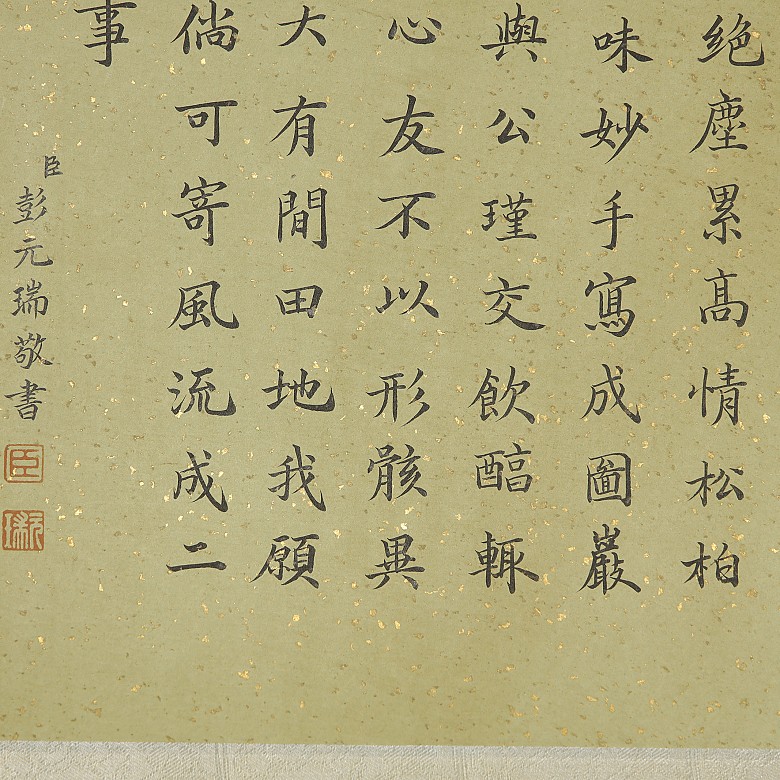 絶塵累高情松柏
味妙手寫成圖巖
與公瑾交飲醕輙
心友不以形骸異
大有閒田地我願
倘可寄風流成二
事
臣彭元瑞敬書
臣